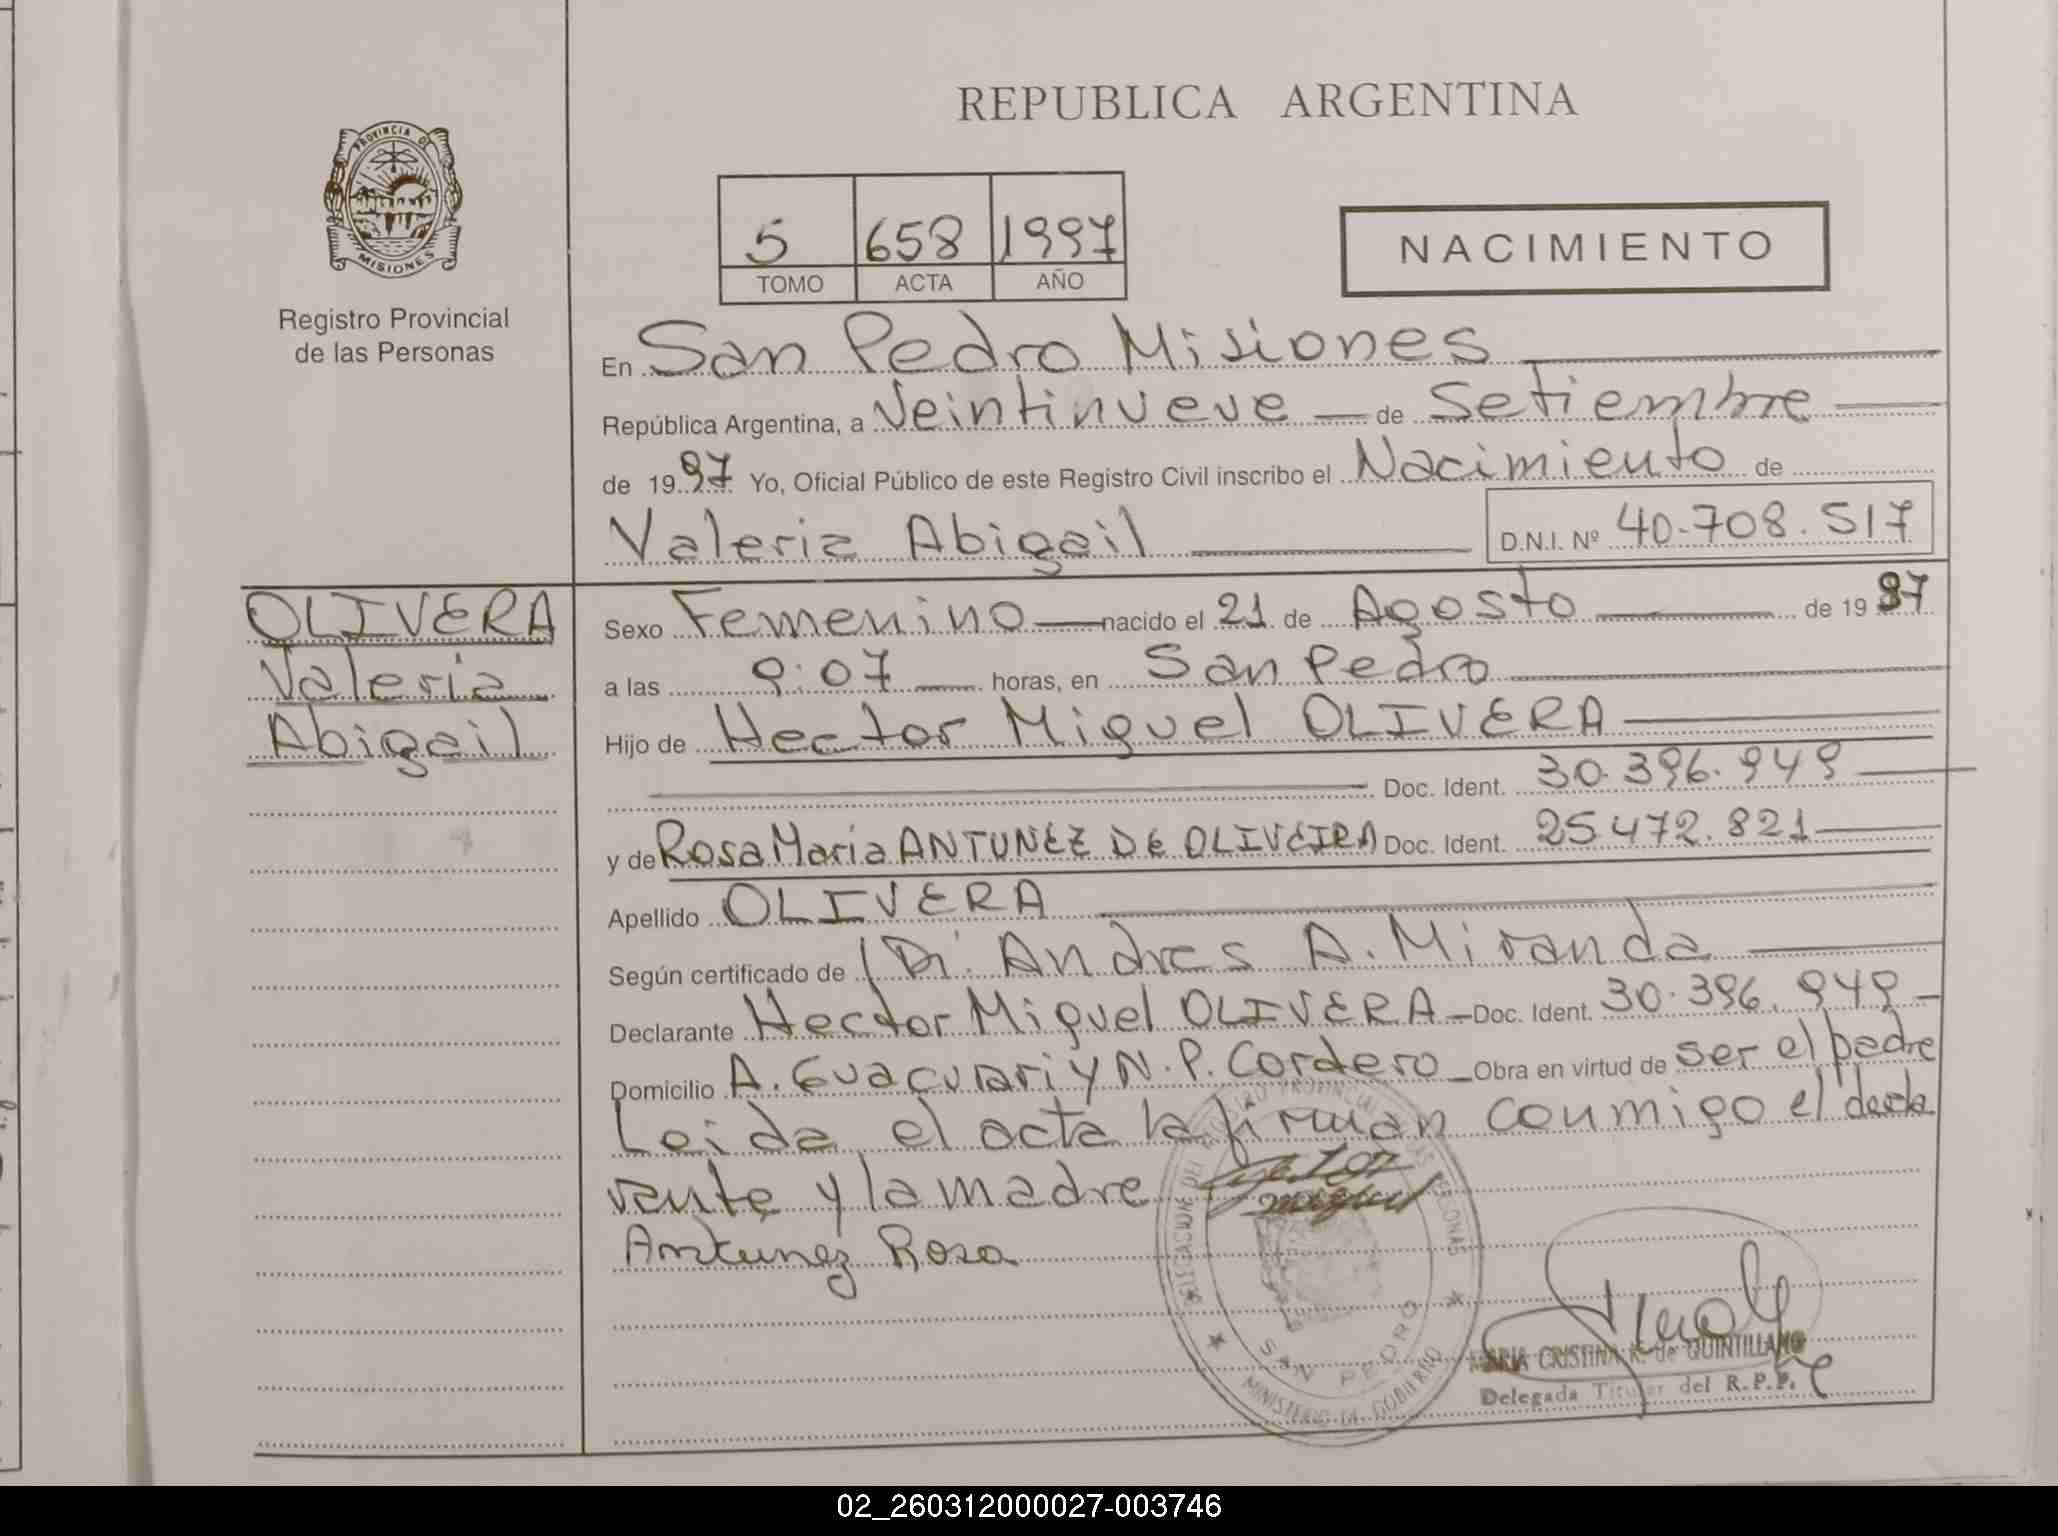 REPUBLICA ARGENTINA
PROVINCIA DE
MISIONES
Registro Provincial
de las Personas
5 658 1997
TOMO ACTA AÑO
NACIMIENTO
En San Pedro Misiones
República Argentina, a Veintinueve de Setiembre
de 1997 Yo, Oficial Público de este Registro Civil inscribo el Nacimiento de
Valeria Abigail D.N.I. Nº 40.708.517
OLIVERA
Valeria
Abigail
Sexo Femenino nacido el 21 de Agosto de 1997
a las 9:07 horas, en San Pedro
Hijo de Hector Miguel OLIVERA
Doc. Ident. 30.396.949
y de Rosa Maria ANTUNEZ DE OLIVEIRA Doc. Ident. 25.472.821
Apellido OLIVERA
Según certificado de Andres A. Miranda
Declarante Hector Miguel OLIVERA Doc. Ident. 30.396.949
Domicilio A. Guacurari y N.P. Cordero Obra en virtud de ser el padre
Leida el acta la firman conmigo el decla
rante y la madre
Miguel
Antunez Rosa
DELEGACION DEL REGISTRO PROVINCIAL DE LAS PERSONAS
SAN PEDRO
MINISTERIO DE GOBIERNO
MARIA CRISTINA K. de QUINTILLANO
Delegada Titular del R.P.P.
02_260312000027-003746